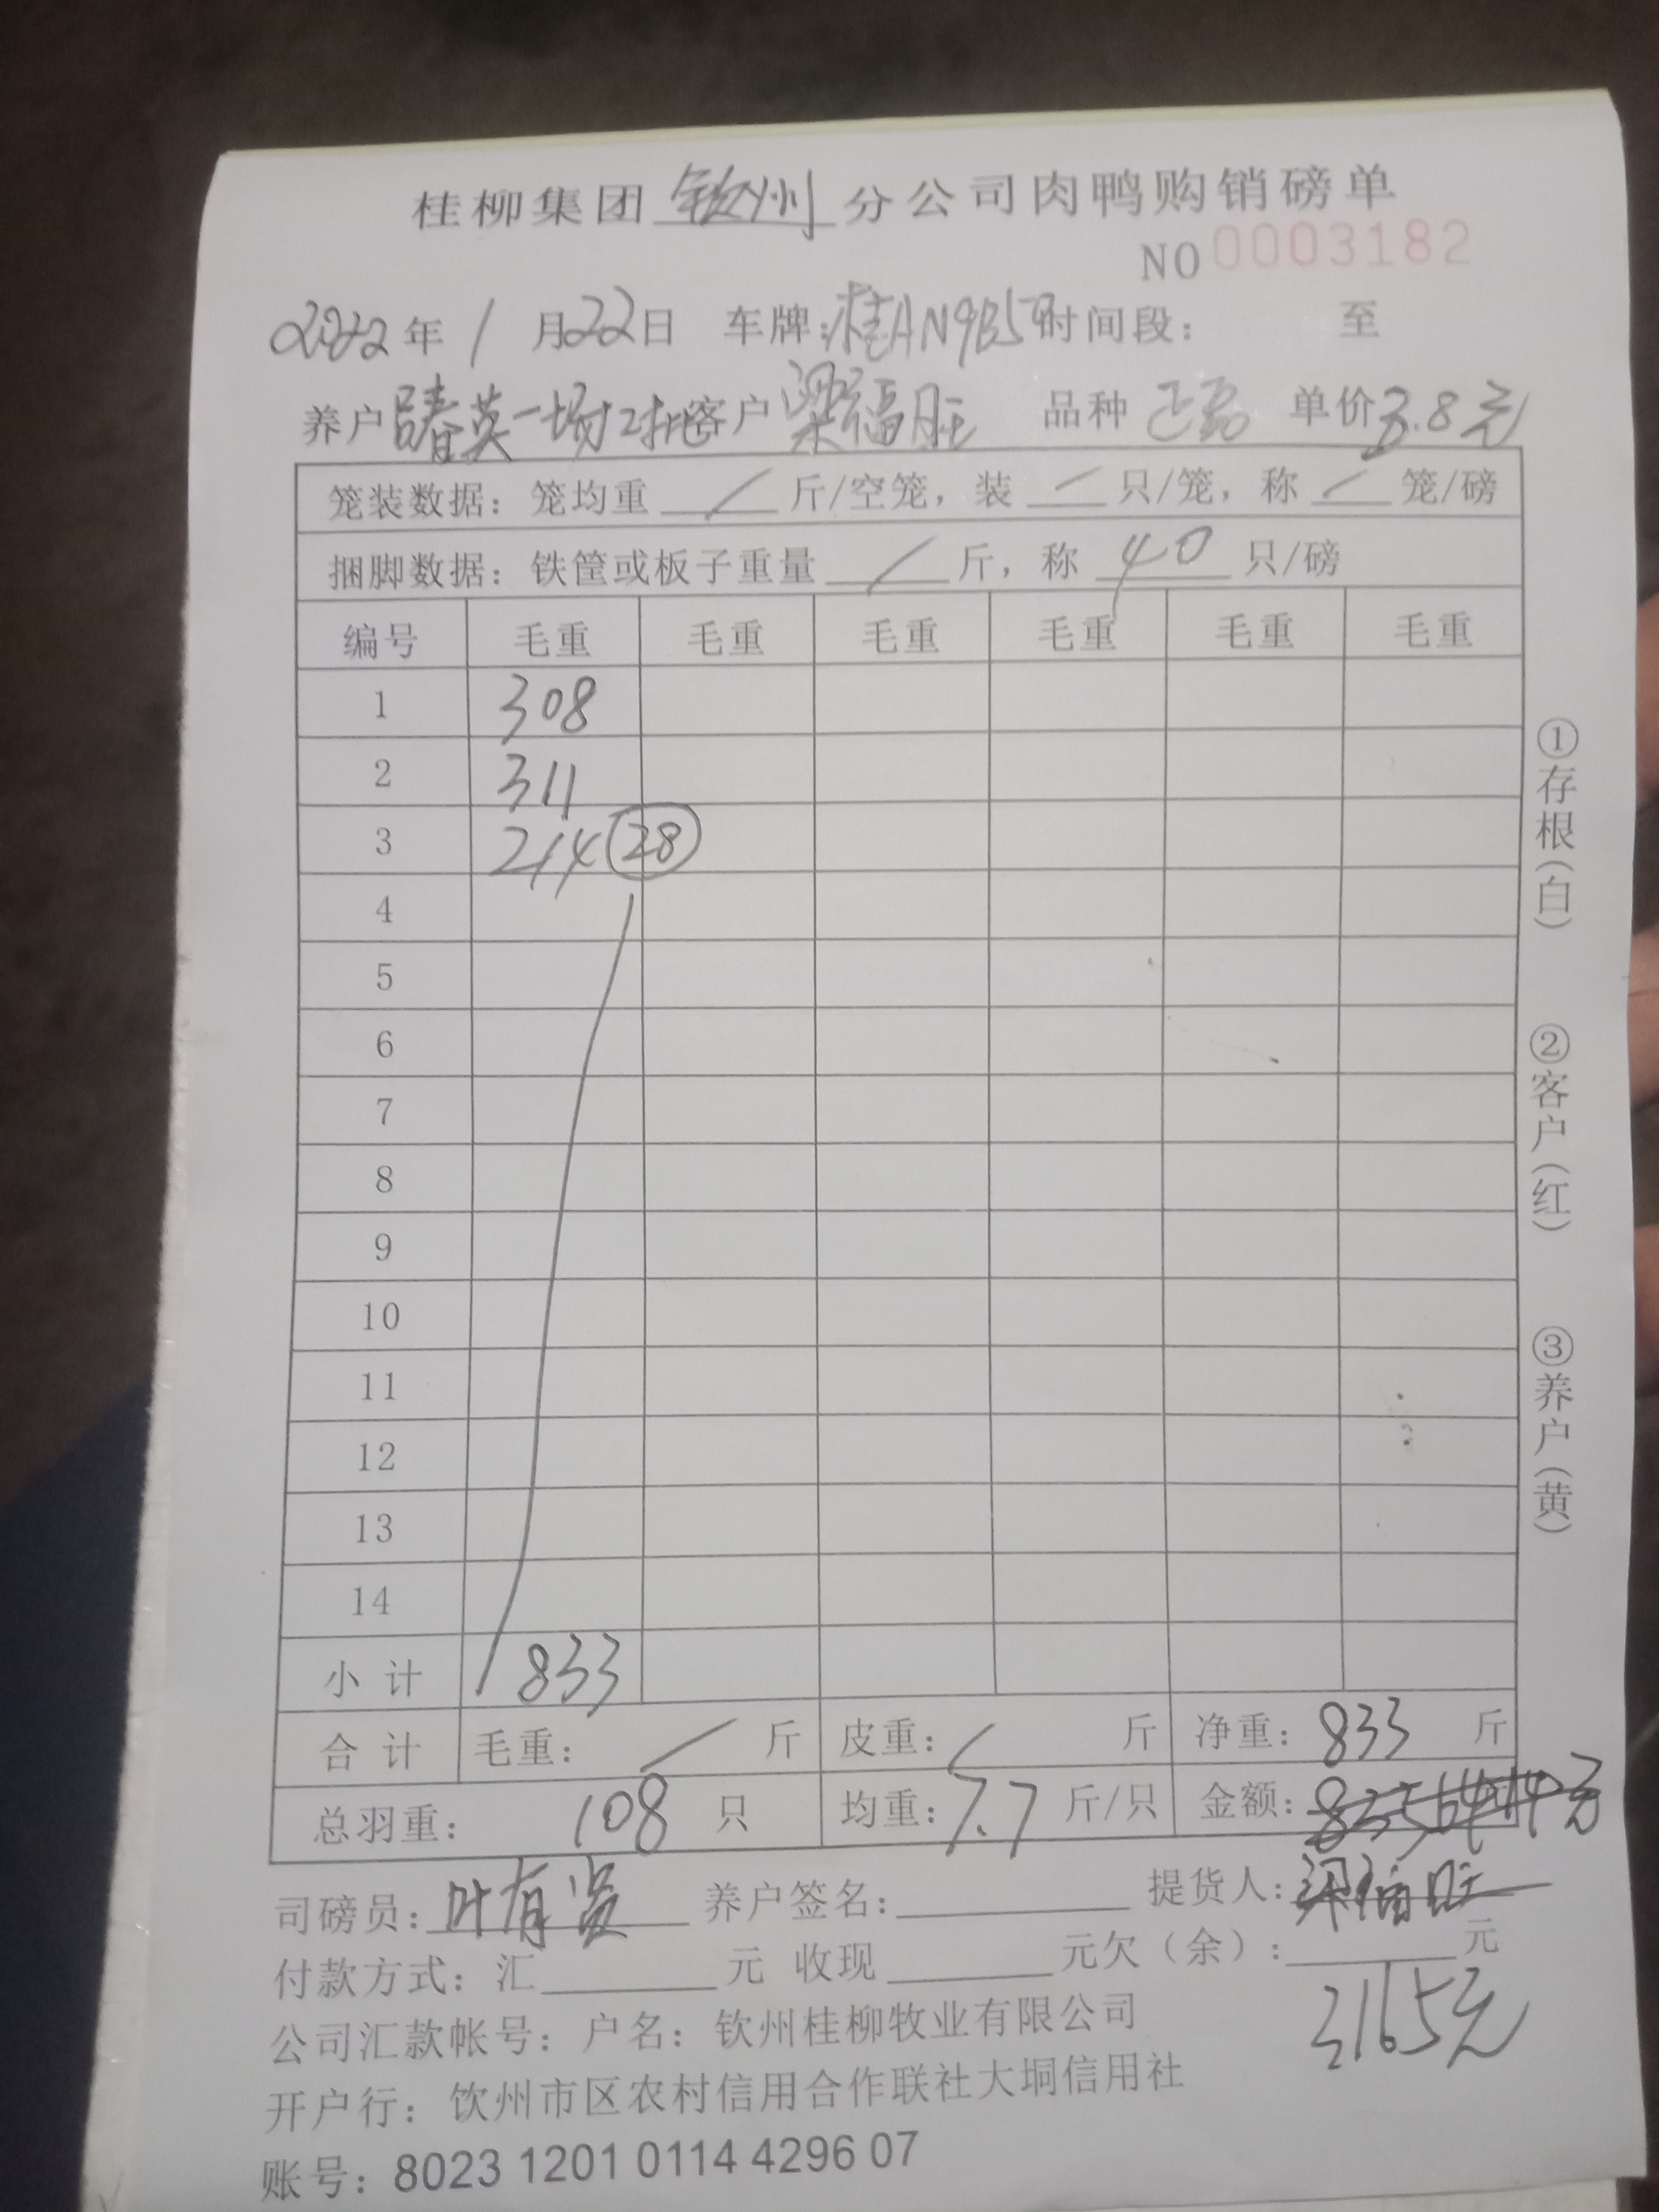 桂柳集团 钦州 分公司肉鸭购销磅单
NO 0003182
2022 年 1 月 22 日 车牌: 桂AN9B5 时间段: 至
养户 春英一场2批 客户 梁福旺 品种 单价 3.8元
笼装数据: 笼均重 / 斤/空笼, 装 / 只/笼, 称 / 笼/磅
捆脚数据: 铁筐或板子重量 / 斤, 称 40 只/磅
编号 毛重 毛重 毛重 毛重 毛重 毛重
1 308
2 311
3 214 28
4
5
6
7
8
9
10
11
12
13
14
小 计 833
合 计 毛重: / 斤 皮重: / 斤 净重: 833 斤
总羽重: 108 只 均重: 7.7 斤/只 金额: 元
司磅员: 叶有 养户签名: 提货人: 梁福旺
付款方式: 汇 元 收现 元欠（余）: 元
3165元
公司汇款帐号: 户名: 钦州桂柳牧业有限公司
开户行: 钦州市区农村信用合作联社大垌信用社
账号: 8023 1201 0114 4296 07
①存根(白) ②客户(红) ③养户(黄)